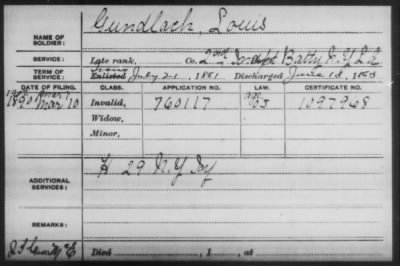 NAME OF SOLDIER: Gundlach, Louis
SERVICE: Late rank, Co. Indpt Batty N.Y. L.A.
TERM OF SERVICE: Enlisted July 21, 1861 Discharged June 13, 1863
DATE OF FILING. CLASS. APPLICATION NO. LAW. CERTIFICATE NO.
1890 Mar 10 Invalid, 760117 1097968
Widow,
Minor,
ADDITIONAL SERVICES: H 29 N.Y. Inf
REMARKS:
Died , 1 , at